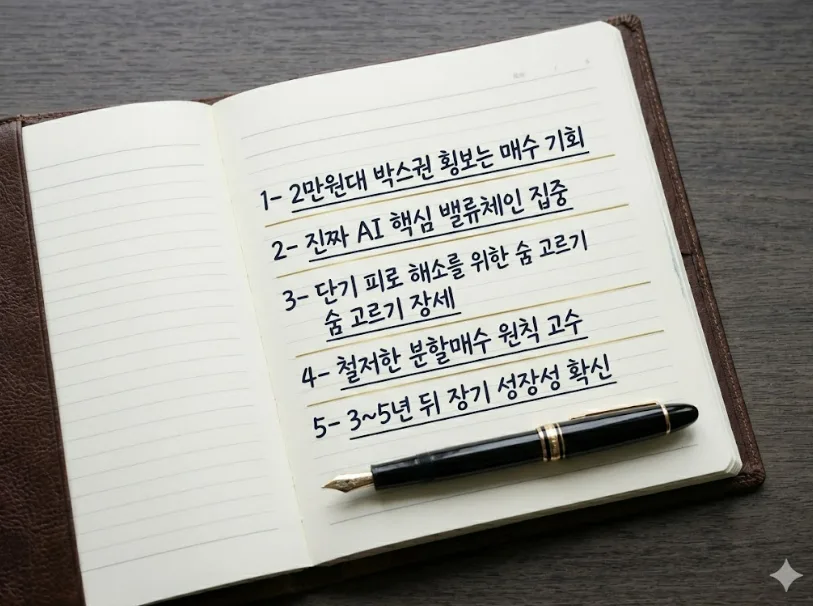 1- 2만원대 박스권 횡보는 매수 기회
2- 진짜 AI 핵심 밸류체인 집중
3- 단기 피로 해소를 위한 숨 고르기
숨 고르기 장세
4- 철저한 분할매수 원칙 고수
5- 3~5년 뒤 장기 성장성 확신